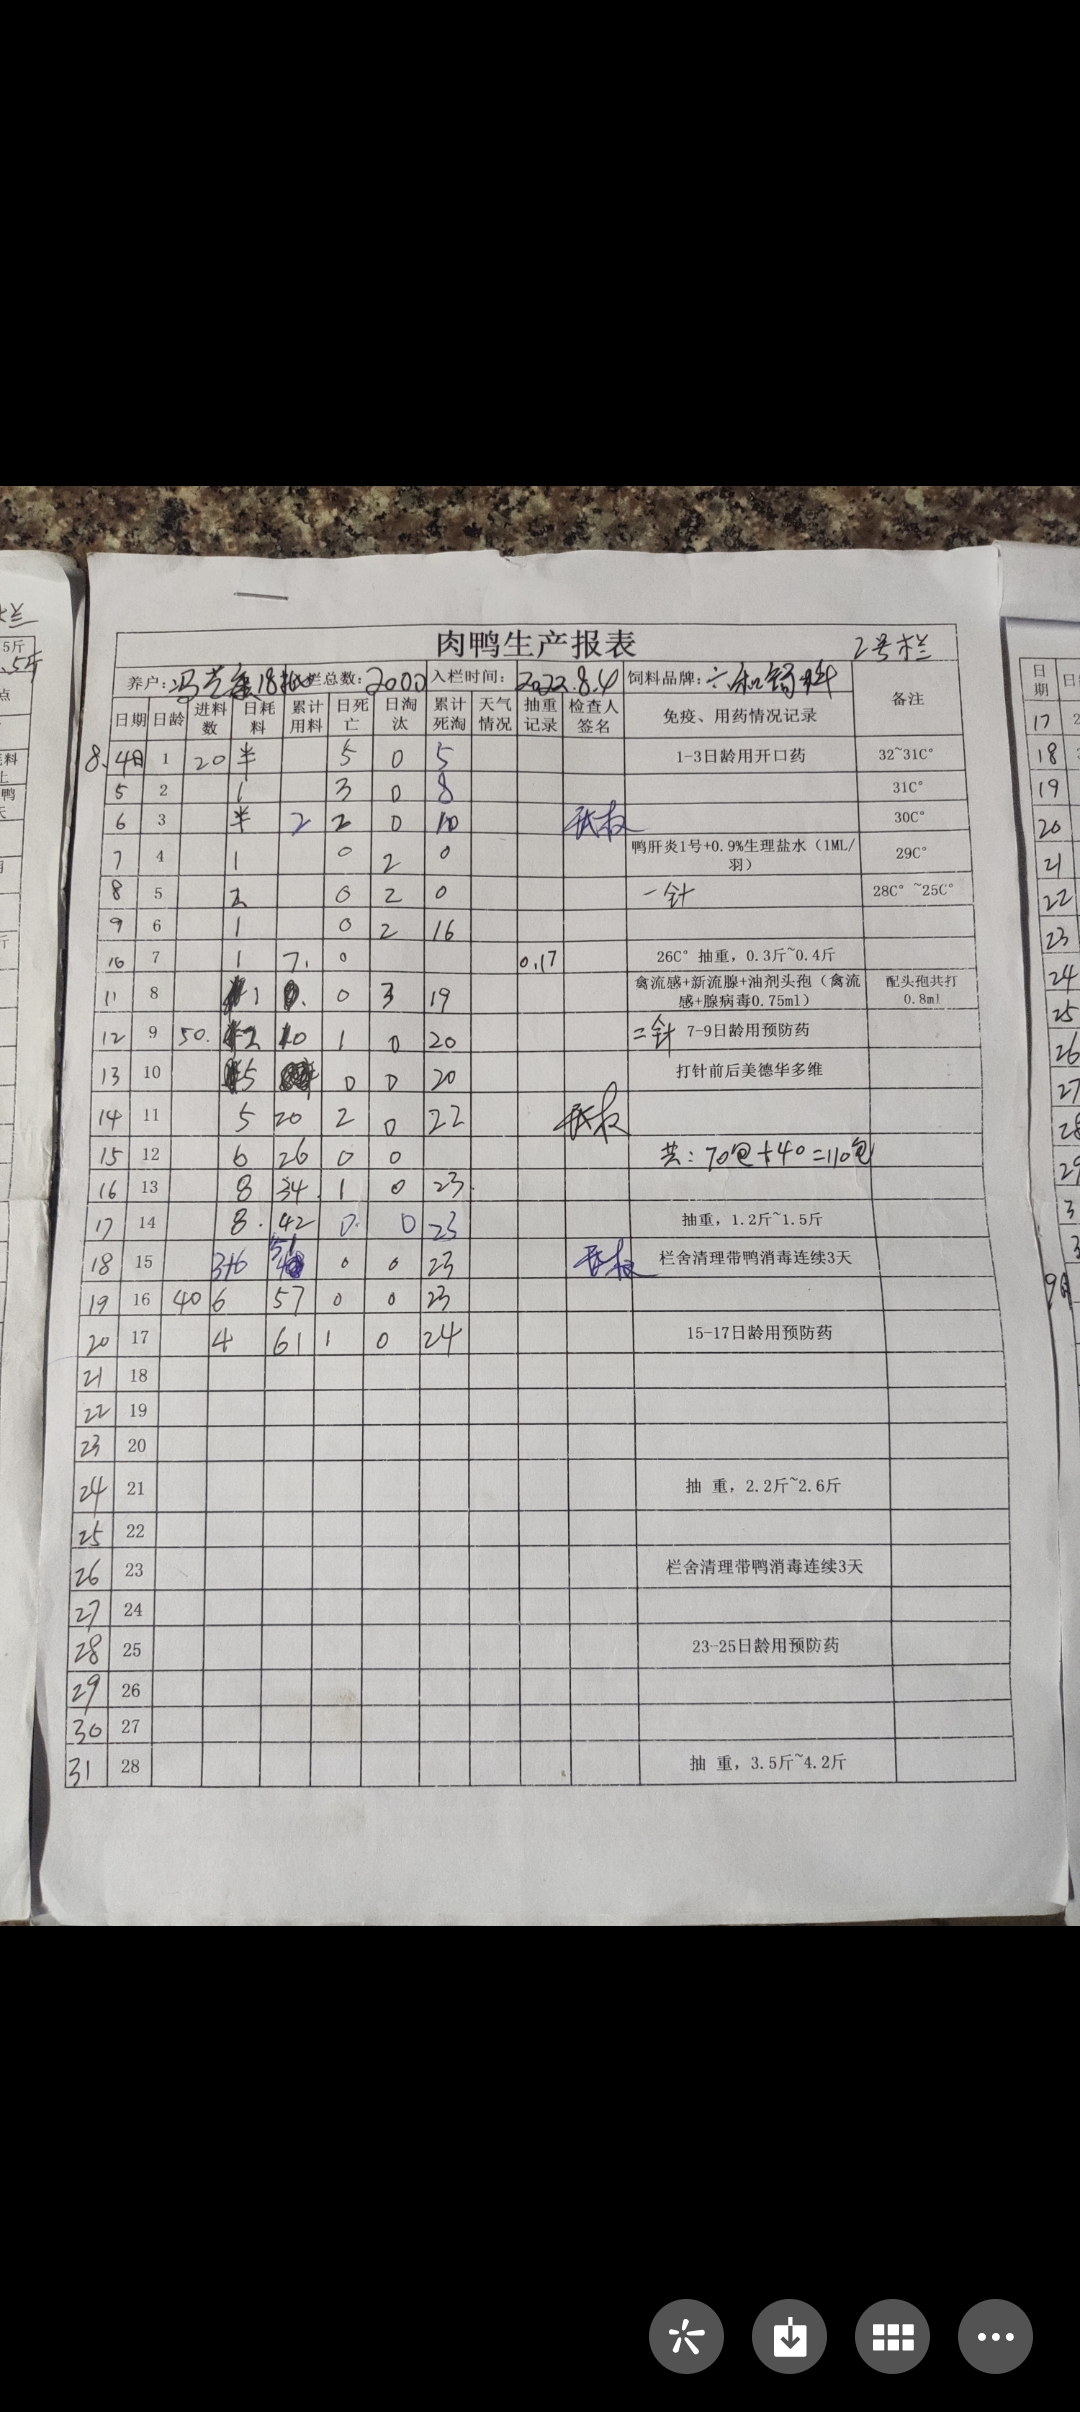 肉鸭生产报表 2号栏
养户: 18批 栏总数: 2000 入栏时间: 2022.8.4 饲料品牌: 六和饲料 备注
日期 日龄 进料数 日耗料 累计用料 日死亡 日淘汰 累计死淘 天气情况 抽重记录 检查人签名 免疫、用药情况记录
8.4日 1 20 半 5 0 5 1-3日龄用开口药 32~31C°
5 2 1 3 0 8 31C°
6 3 半 2 2 0 10 30C°
7 4 1 0 2 0 鸭肝炎1号+0.9%生理盐水（1ML/羽） 29C°
8 5 2 0 2 0 一针 28C° ~25C°
9 6 1 0 2 16
10 7 1 7. 0 0.17 26C° 抽重，0.3斤~0.4斤
11 8 1 0 3 19 禽流感+新流腺+油剂头孢（禽流感+腺病毒0.75ml） 配头孢共打0.8ml
12 9 50. 2 10 1 0 20 二针 7-9日龄用预防药
13 10 5 0 0 20 打针前后美德华多维
14 11 5 20 2 0 22
15 12 6 26 0 0 共: 70包+40=110包
16 13 8 34 1 0 23.
17 14 8. 42 0. 0 23 抽重，1.2斤~1.5斤
18 15 3+6 51 0 0 23 栏舍清理带鸭消毒连续3天
19 16 40 6 57 0 0 23
20 17 4 61 1 0 24 15-17日龄用预防药
21 18
22 19
23 20
24 21 抽 重，2.2斤~2.6斤
25 22
26 23 栏舍清理带鸭消毒连续3天
27 24
28 25 23-25日龄用预防药
29 26
30 27
31 28 抽 重，3.5斤~4.2斤
日期
17
18
19
20
21
22
23
24
25
26
27
28
29